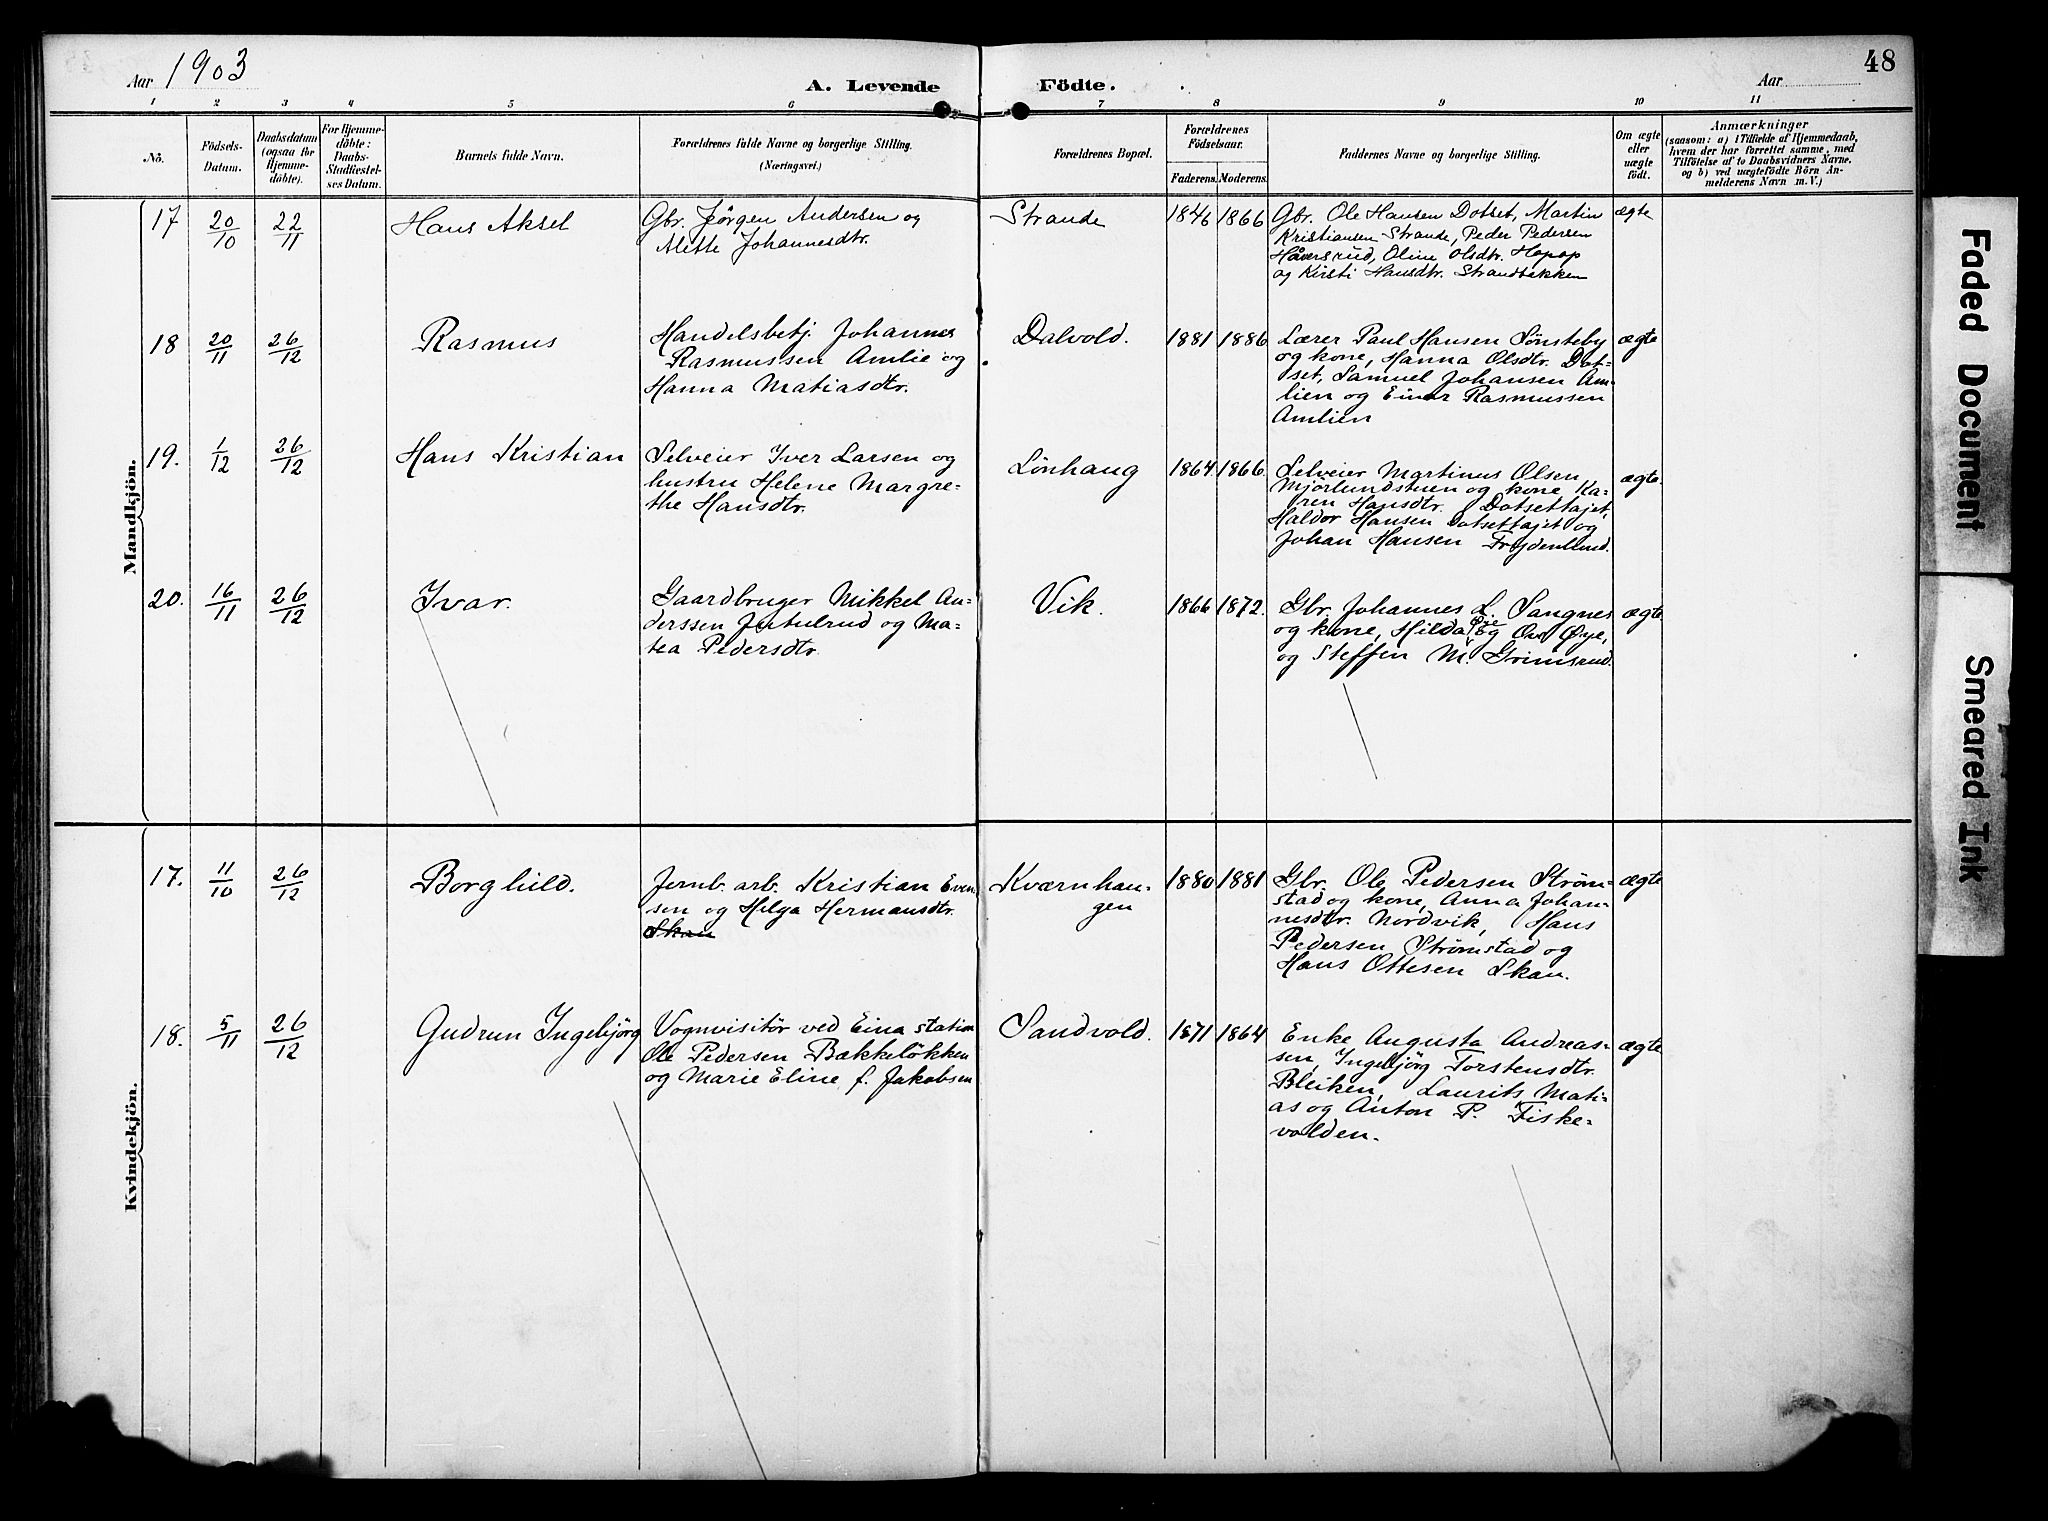 Aar 1903
A. Levende
Födte.
Aar
48
1 2 3 4 5 6 7 8 9 10 11
No.
Födsels-
Datum.
Daabsdatum
(ogsaa for
Hjemme-
döbte).
For Hjemme-
döbte:
Daabs-
Stadfæstel-
ses Datum.
Barnets fulde Navn.
Forældrenes fulde Navne og borgerlige Stilling.
(Næringsvei.)
Forældrenes Bopæl.
Forældrenes
Födselsaar.
Faderens.
Moderens.
Faddernes Navne og borgerlige Stilling.
Om ægte
eller
uægte
födt.
Anmærkninger
(saasom: a) i Tilfælde af Hjemmedaab,
hvem der har forrettet samme, med
Tilföielse af to Daabsvidners Navne.
og b) ved uægtefödte Börn An-
melderens Navn m. V.)
Mandkjön.
17
20/10
22/11
Hans Aksel
Gbr. Jørgen Andersen og
Alette Johannesdtr.
Strande
1846
1866
Gbr. Ole Hansen Dotset, Martin
Kristiansen Strande, Peder Pedersen
Håversrud, Oline Olsdtr. Hopop
og Kirsti Hansdtr. Strandbakken
ægte
18
20/11
26/12
Rasmus
Handelsbetj. Johannes
Rasmussen Amlie og
Hanna Matiasdtr.
Dalvold.
1881
1886
Lærer Paul Hansen Sønsteby
og kone, Hanna Olsdtr. Dot-
set, Samuel Johansen Am-
lien og Einar Rasmussen
Amlien
ægte
19.
1/12
26/12
Hans Kristian
Selveier Iver Larsen og
hustru Helene Margre-
the Hansdtr.
Lönhaug
1864
1866.
Selveier Martinus Olsen
Mjörlundstuen og kone Ka-
ren Hansdtr. Dotsettajet,
Haldor Hansen Dotsettajet og
Johan Hansen Frydenlund.
ægte.
20.
16/11
26/12
Ivar.
Gaardbruger Mikkel An-
derssen Jutulrud og Ma-
tea Pedersdtr.
Vik.
1866
1872.
Gbr. Johannes L. Sangnes
og kone, Hilda Øie og Ove Øye,
og Steffen M. Grimsrud.
ægte.
Kvindekjön.
17.
11/10
26/12
Borghild.
Jernb. arb. Kristian Even-
sen og Helga Hermansdtr.
Skau
Kværnhau-
gen
1880
1881
Gbr. Ole Pedersen Strøm-
stad og kone, Anna Johan-
nesdtr. Nordvik, Hans
Pedersen Strømstad og
Hans Ottesen Skau.
ægte
18.
5/11
26/12
Gudrun Ingebjörg
Vognvisitør ved Eina station
Ole Pedersen Bækkeløkken
og Marie Eline f. Jakobsen
Sandvold.
1871
1864
Enke Augusta Andreas-
sen, Ingebjörg Torstensdtr.
Bleiken, Laurits Mati-
as og Anton P. Fiske-
volden.
ægte
Faded Document
Smeared Ink